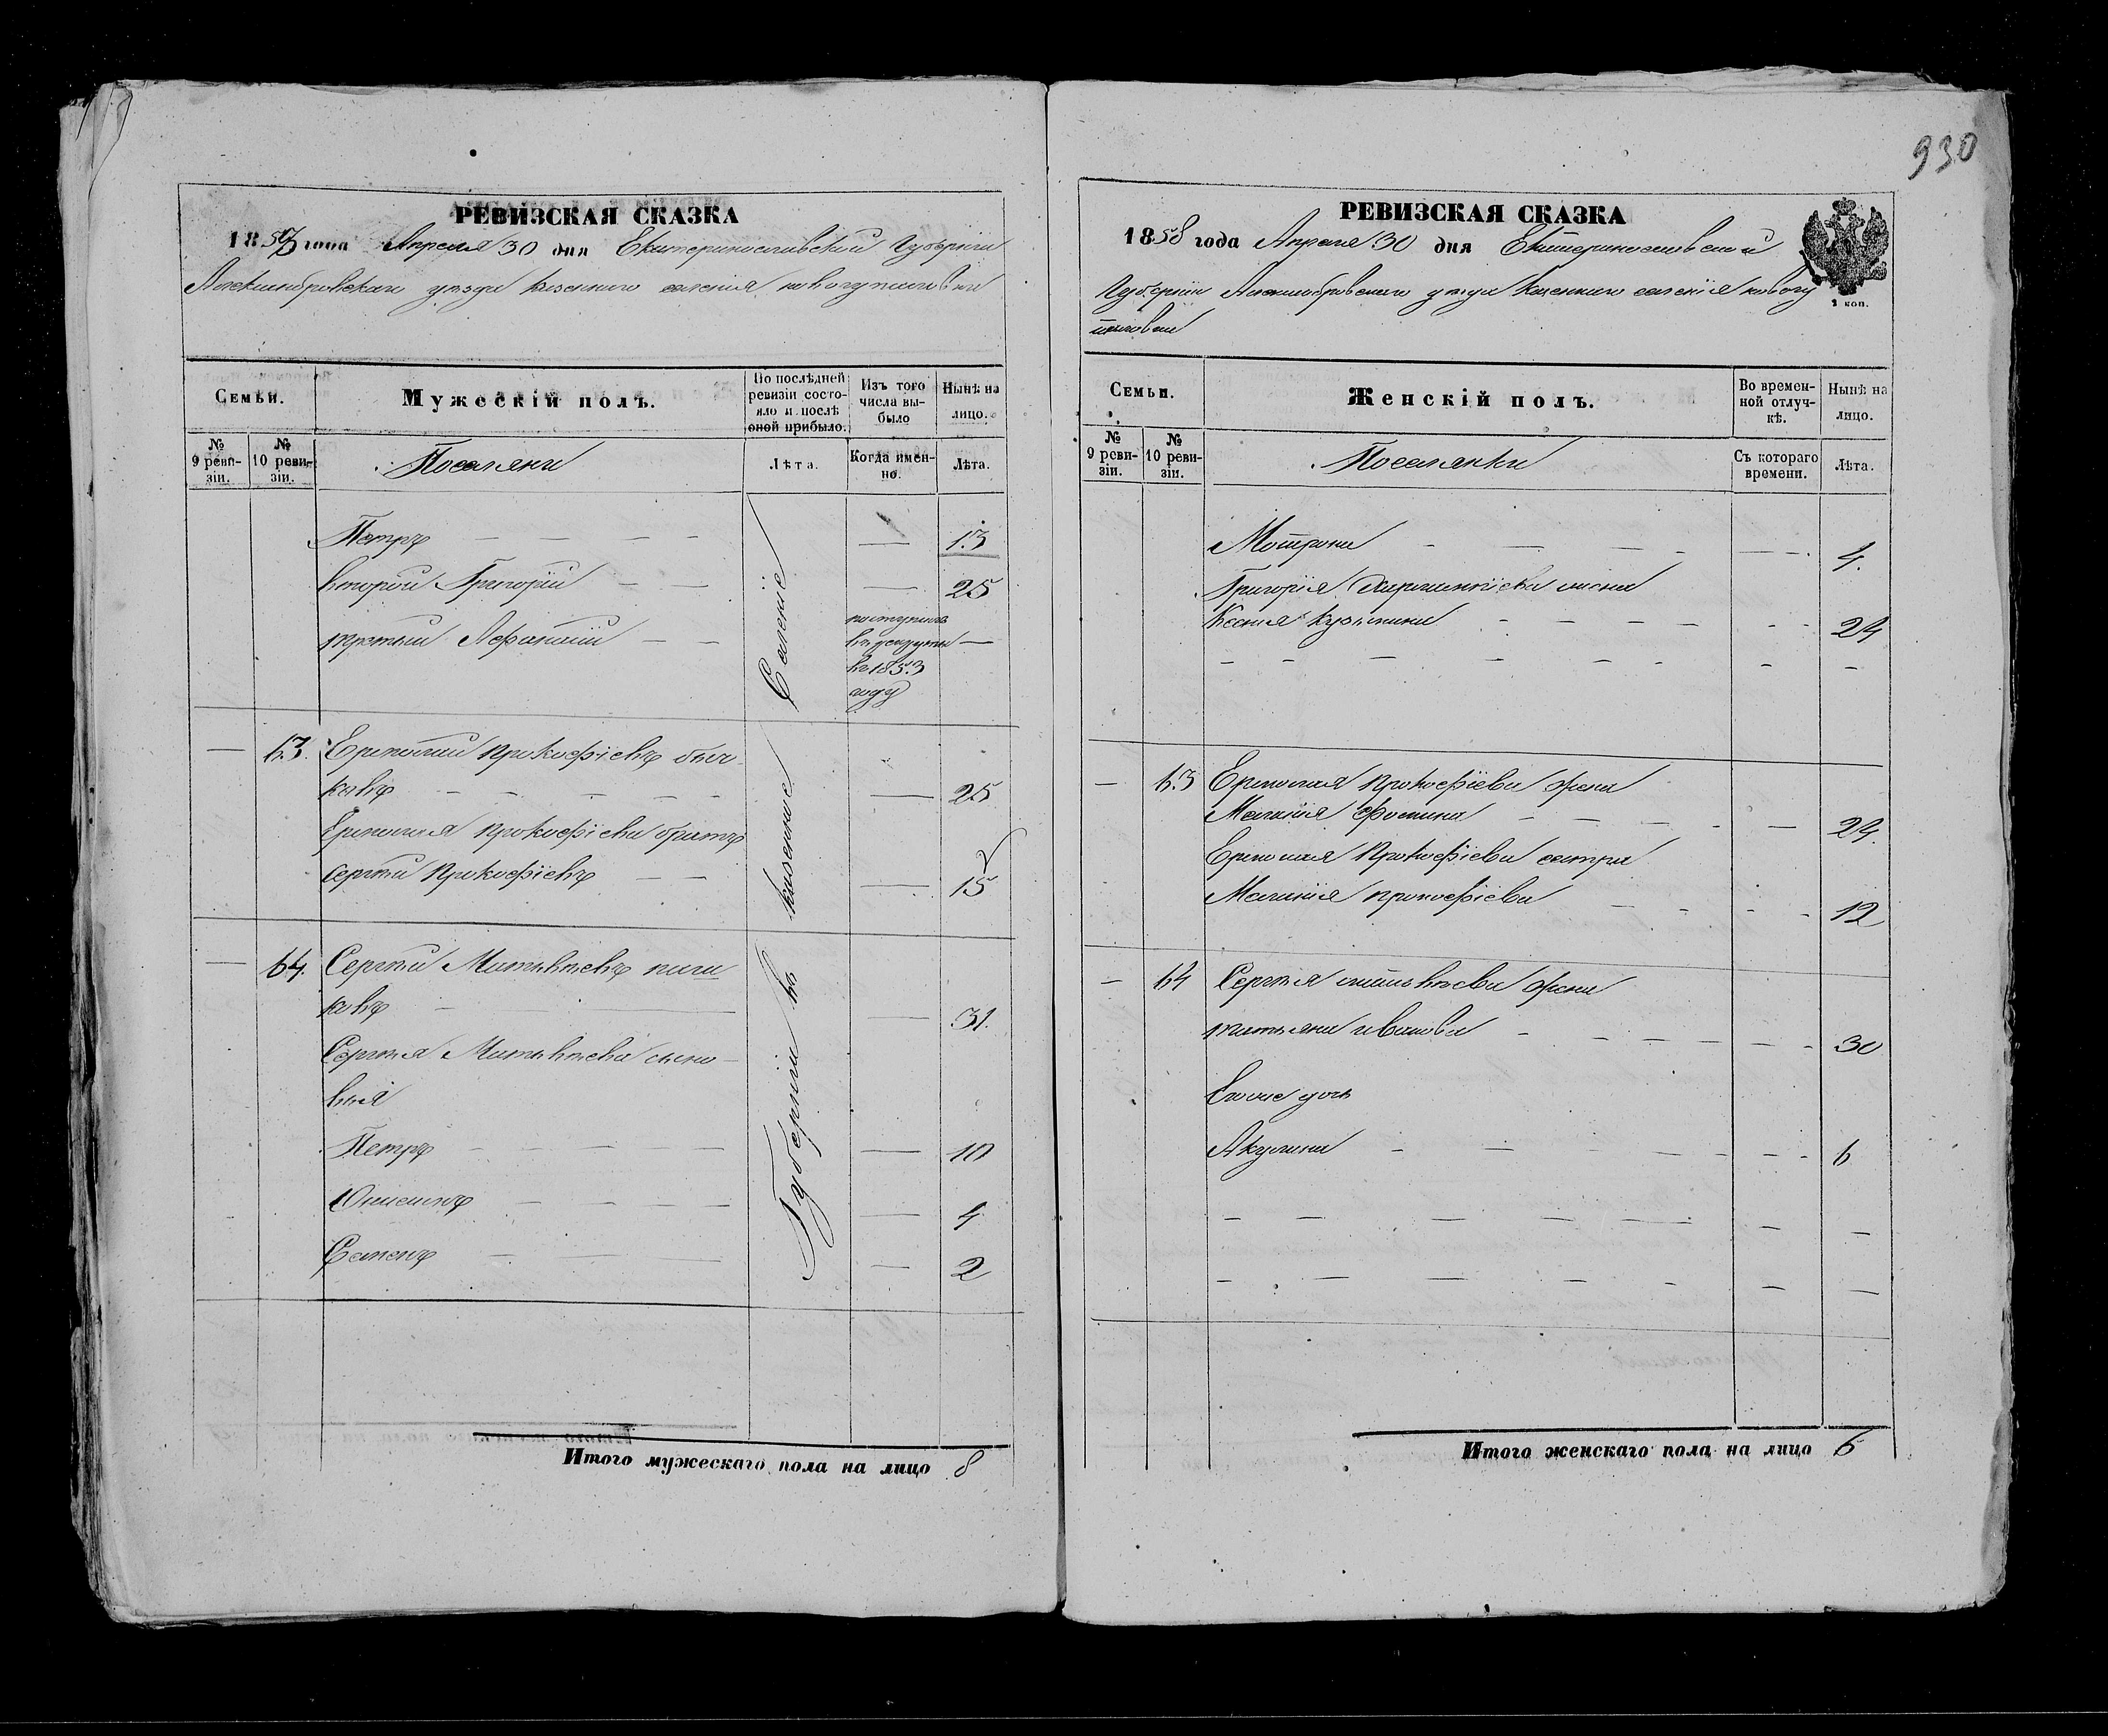 930
РЕВИЗСКАЯ СКАЗКА
1858 года Апреля 30 дня Екатеринославской Губерніи
Александровскаго уезда казенного селенія новогупаловки
Семьи.
Мужескій полъ.
По послѣдней ревизіи состояло и послѣ оной прибыло.
Изъ того числа выбыло
Нынѣ на лицо.
№ 9 ревизіи.
№ 10 ревизіи.
Поселяне
Лѣта.
Когда именно.
Лѣта.
Петръ — — — — 13
второй Григорій — — — 25
третий Афанасій — — поступилъ —
въ рекруты
въ 1853
году
— 63.
Прокофіевъ
ковъ — — — — — — 25
Прокофіева братъ
Сергей Прокофіевъ — — — 15
— 64. Сергей Матвеевъ
ковъ — — 31.
Сергея Матвеева сыно-
вья
Петръ — — — — — 10
— — — — — 4
Семенъ — — — 2
Губерніи въ казенное Селеніе
Итого мужескаго пола на лицо 8
РЕВИЗСКАЯ СКАЗКА
1858 года Апреля 30 дня Екатеринославской
Губерніи Александровского уезда Казенного селенія новогу
паловки
1 коп.
Семьи.
Женскій полъ.
Во временной отлучкѣ.
Нынѣ на лицо.
№ 9 ревизіи.
№ 10 ревизіи.
Поселянки
Съ котораго времени.
Лѣта.
Мотрона — — — — — 4.
Григорія жена
Ксенія Кузмина — — — — — — 24
— — — — — — — —
— 63 Прокофіева жена
Меланія Фомина — — — — — 24.
Прокофіева сестра
Меланія Прокофіева — — — — 12
— 64 Сергея Матвеева жена
татьяна иванова — — — — — — — 30
Ихъ дочь
Акулина — — — — — — — 6
— — — — — — —
— — — — — — —
Итого женскаго пола на лицо 6